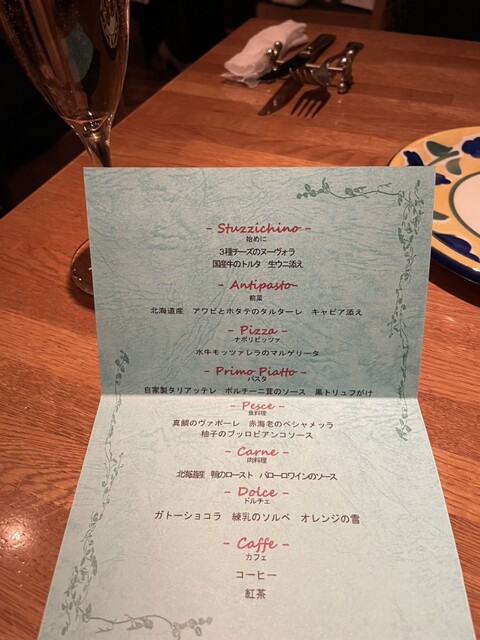 - Stuzzichino -
始めに
3種チーズのヌーヴォラ
国産牛のトルタ 生ウニ添え
- Antipasto-
前菜
北海道産 アワビとホタテのタルターレ キャビア添え
- Pizza -
ナポリピッツァ
水牛モッツァレラのマルゲリータ
- Primo Piatto -
パスタ
自家製タリアッテレ ポルチーニ茸のソース 黒トリュフがけ
- Pesce -
魚料理
真鯛のヴァポーレ 赤海老のベシャメッラ
柚子のブッロビアンコソース
- Carne -
肉料理
北海道産 鴨のロースト バローロワインのソース
- Dolce -
ドルチェ
ガトーショコラ 練乳のソルベ オレンジの雪
- Caffe -
カフェ
コーヒー
紅茶